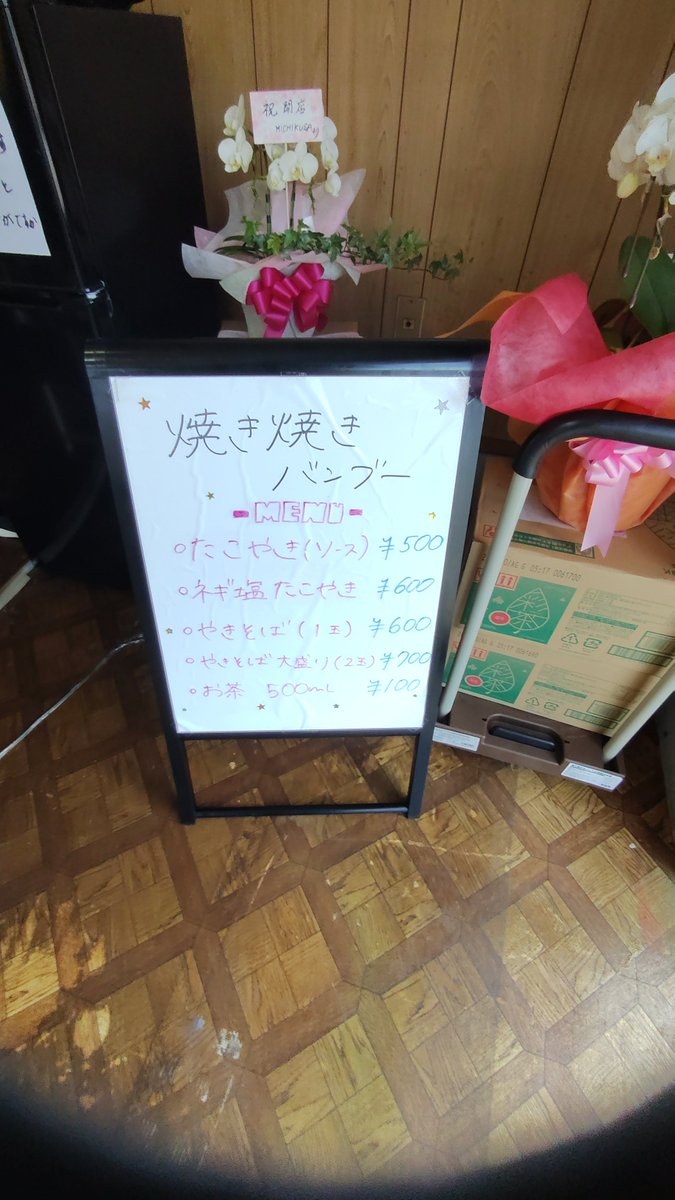 祝開店
MICHIKUSA
焼き焼き
バンブー
MENU
たこやき(ソース) ¥500
ネギ塩たこやき ¥600
やきそば(1玉) ¥600
やきそば大盛り(2玉) ¥700
お茶 500mL ¥100
茶
茶